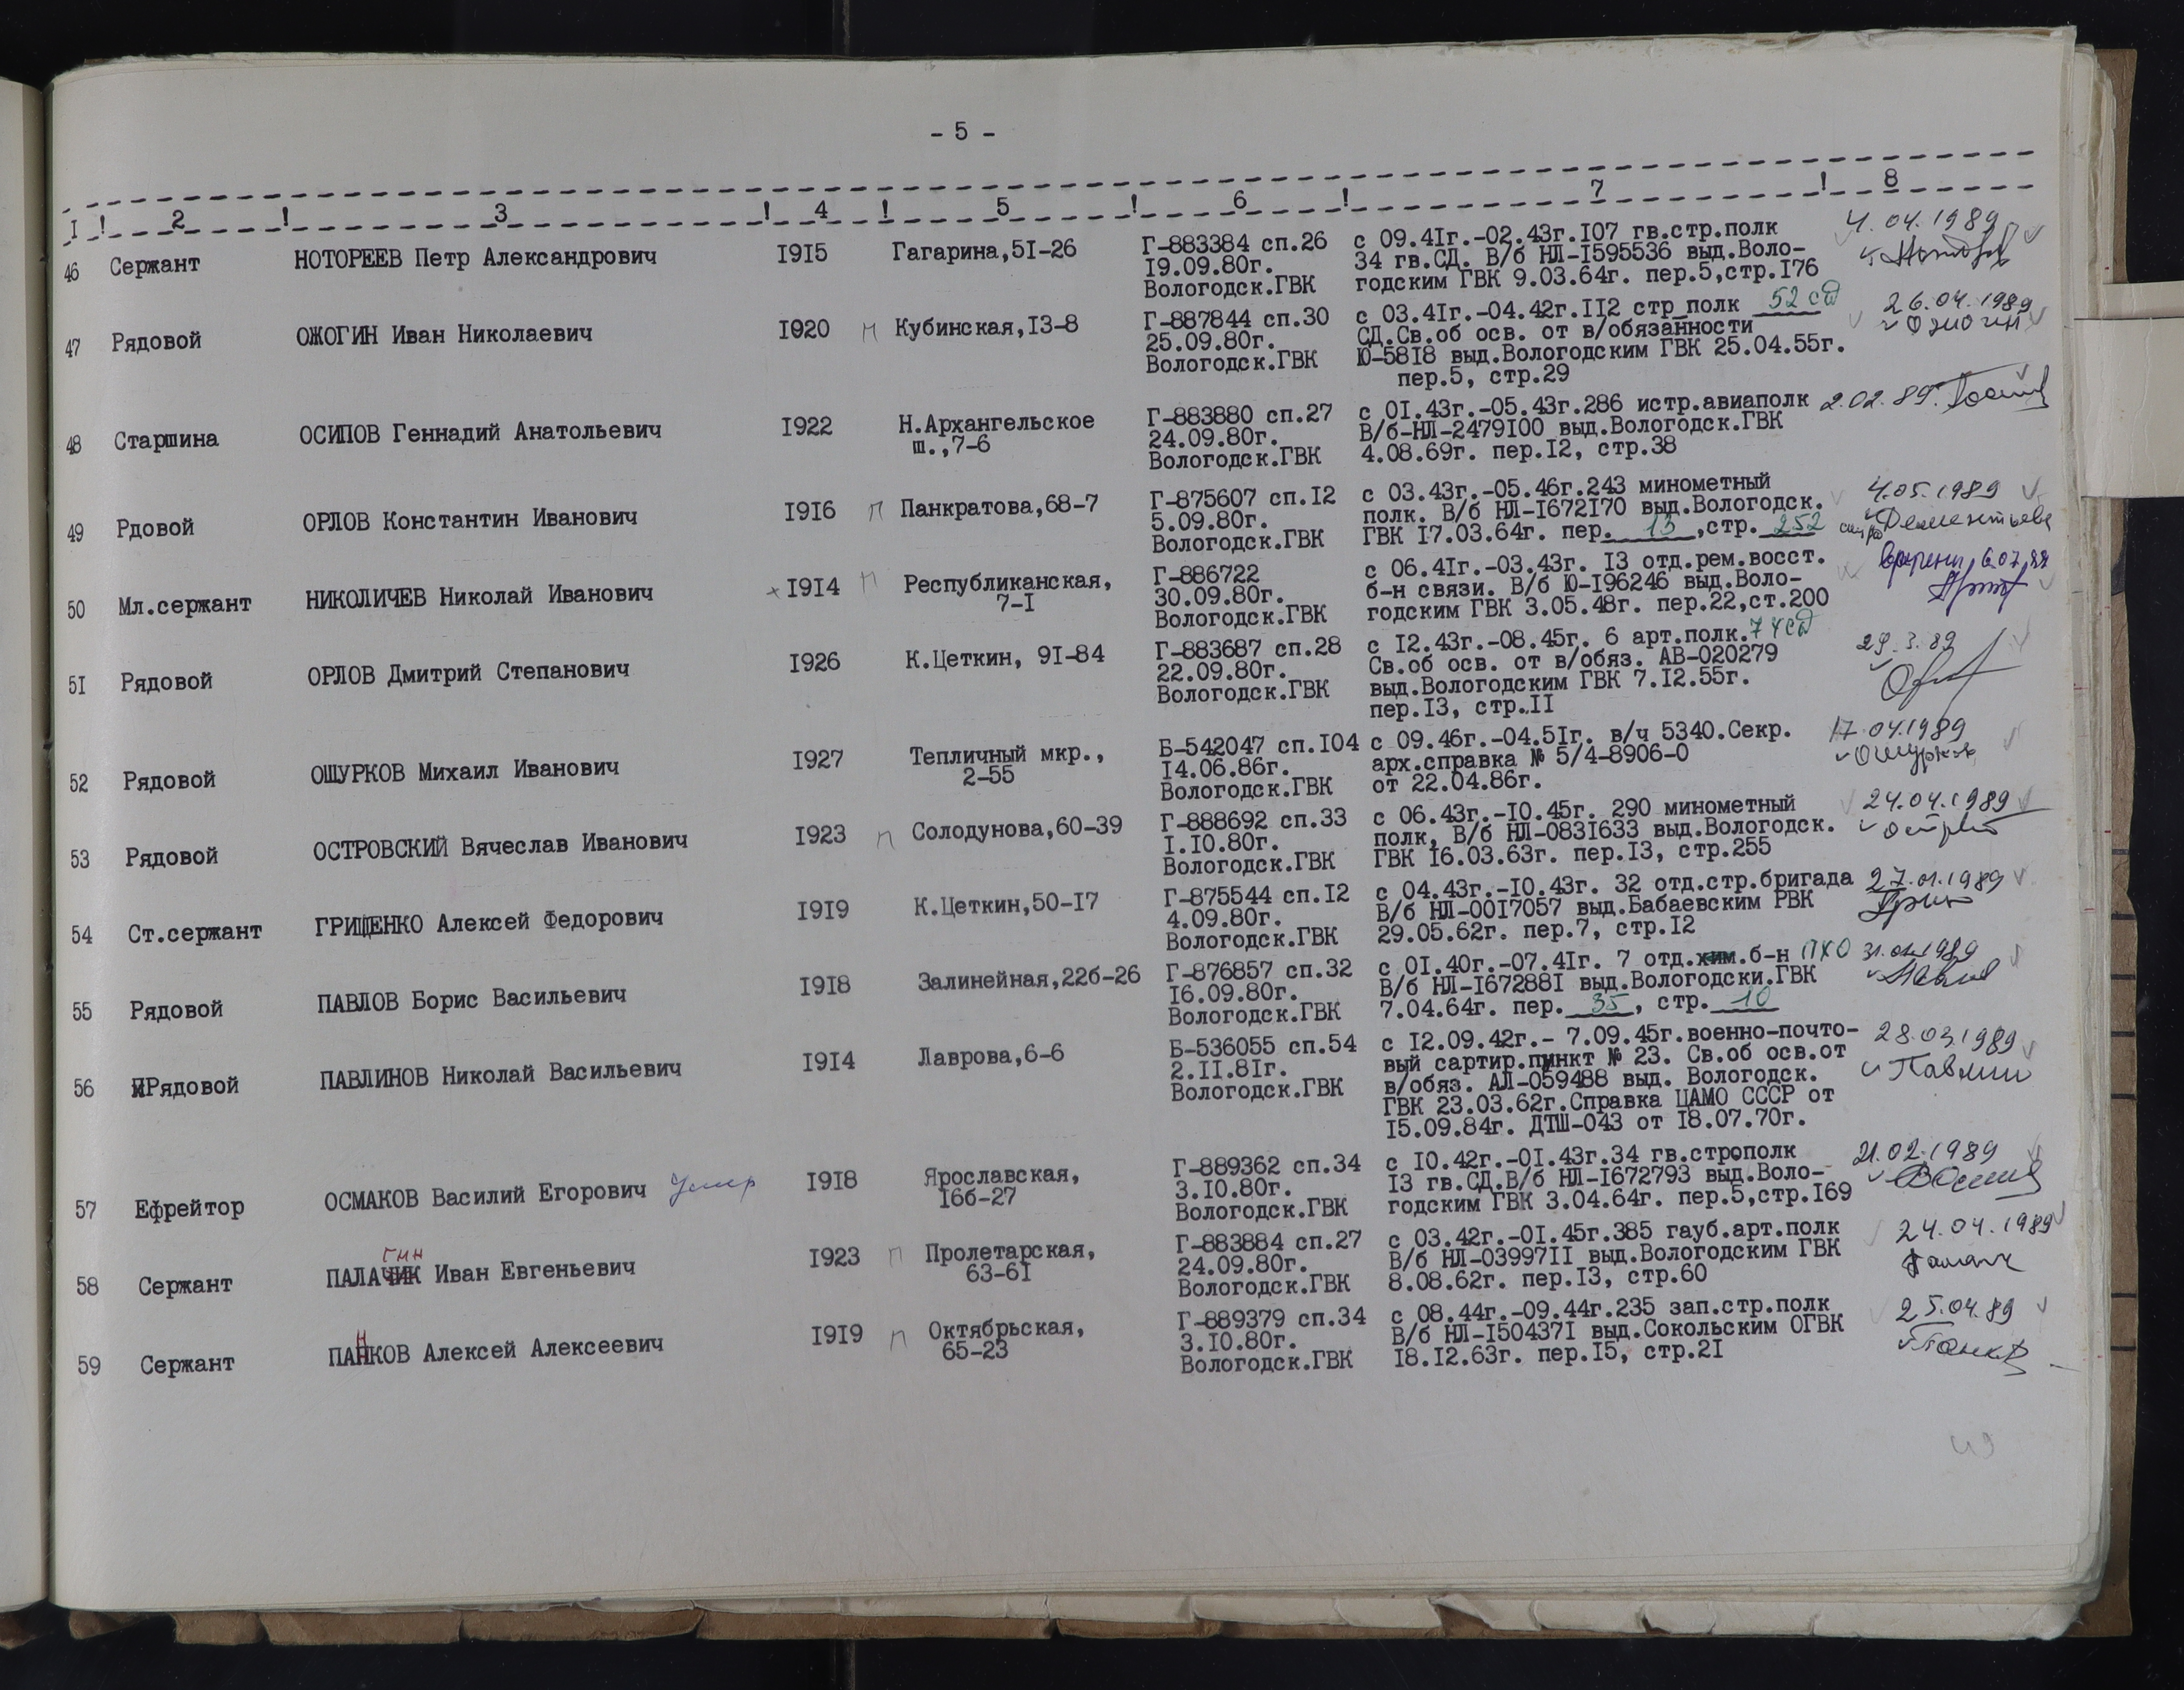 - 5 -
I ! 2 ! 3 ! 4 ! 5 ! 6 ! 7 ! 8
46 Сержант НОТОРЕЕВ Петр Александрович I9I5 Гагарина,5I-26 Г-883384 сп.26 с 09.4Iг.-02.43г.I07 гв.стр.полк 4.04.1989
I9.09.80г. 34 гв.СД. В/б НЛ-I595536 выд.Воло-
Вологодск.ГВК годским ГВК 9.03.64г. пер.5,стр.I76
47 Рядовой ОЖОГИН Иван Николаевич I920 п Кубинская,I3-8 Г-887844 сп.30 с 03.4Iг.-04.42г.II2 стр_полк 52 сд 26.04.1989
25.09.80г. СД.Св.об осв. от в/обязанности Ожогин
Вологодск.ГВК Ю-58I8 выд.Вологодским ГВК 25.04.55г.
пер.5, стр.29
48 Старшина ОСИПОВ Геннадий Анатольевич I922 Н.Архангельское Г-883880 сп.27 с 0I.43г.-05.43г.286 истр.авиаполк 2.02.89.
ш.,7-6 24.09.80г. В/б-НЛ-2479I00 выд.Вологодск.ГВК
Вологодск.ГВК 4.08.69г. пер.I2, стр.38
49 Рдовой ОРЛОВ Константин Иванович I9I6 п Панкратова,68-7 Г-875607 сп.I2 с 03.43г.-05.46г.243 минометный 4.05.1989
5.09.80г. полк. В/б НЛ-I672I70 выд.Вологодск. Дементьева
Вологодск.ГВК ГВК I7.03.64г. пер. 13 ,стр. 252
50 Мл.сержант НИКОЛИЧЕВ Николай Иванович I9I4 п Республиканская, Г-886722 с 06.4Iг.-03.43г. I3 отд.рем.восст.
7-I 30.09.80г. б-н связи. В/б Ю-I96246 выд.Воло-
Вологодск.ГВК годским ГВК 3.05.48г. пер.22,ст.200
5I Рядовой ОРЛОВ Дмитрий Степанович I926 К.Цеткин, 9I-84 Г-883687 сп.28 с I2.43г.-08.45г. 6 арт.полк.74сд 29.3.89
22.09.80г. Св.об осв. от в/обяз. АВ-020279
Вологодск.ГВК выд.Вологодским ГВК 7.I2.55г.
пер.I3, стр.II
52 Рядовой ОШУРКОВ Михаил Иванович I927 Тепличный мкр., Б-542047 сп.I04 с 09.46г.-04.5Iг. в/ч 5340.Секр. 17.04.1989
2-55 I4.06.86г. арх.справка № 5/4-8906-0 Ошурков
Вологодск.ГВК от 22.04.86г.
53 Рядовой ОСТРОВСКИЙ Вячеслав Иванович I923 п Солодунова,60-39 Г-888692 сп.33 с 06.43г.-I0.45г. 290 минометный 24.04.1989
I.I0.80г. полк, В/б НЛ-083I633 выд.Вологодск.
Вологодск.ГВК ГВК I6.03.63г. пер.I3, стр.255
54 Ст.сержант ГРИЩЕНКО Алексей Федорович I9I9 К.Цеткин,50-I7 Г-875544 сп.I2 с 04.43г.-I0.43г. 32 отд.стр.бригада 27.01.1989
4.09.80г. В/б НЛ-00I7057 выд.Бабаевским РВК
Вологодск.ГВК 29.05.62г. пер.7, стр.I2
55 Рядовой ПАВЛОВ Борис Васильевич I9I8 Залинейная,22б-26 Г-876857 сп.32 с 0I.40г.-07.4Iг. 7 отд.хим.б-н ПХО 31.01.1989
I6.09.80г. В/б НЛ-I67288I выд.Вологодски.ГВК
Вологодск.ГВК 7.04.64г. пер. 35 , стр. 10
56 Рядовой ПАВЛИНОВ Николай Васильевич I9I4 Лаврова,6-6 Б-536055 сп.54 с I2.09.42г.- 7.09.45г.военно-почто- 28.03.1989
2.II.8Iг. вый сартир.пункт № 23. Св.об осв.от Павлин
Вологодск.ГВК в/обяз. АЛ-059488 выд. Вологодск.
ГВК 23.03.62г.Справка ЦАМО СССР от
I5.09.84г. ДТШ-043 от I8.07.70г.
57 Ефрейтор ОСМАКОВ Василий Егорович Умер I9I8 Ярославская, Г-889362 сп.34 с I0.42г.-0I.43г.34 гв.стрполк 21.02.1989
I6б-27 3.I0.80г. I3 гв.СД.В/б НЛ-I672793 выд.Воло-
Вологодск.ГВК годским ГВК 3.04.64г. пер.5,стр.I69
гин
58 Сержант ПАЛАЧИК Иван Евгеньевич I923 п Пролетарская, Г-883884 сп.27 с 03.42г.-0I.45г.385 гауб.арт.полк 24.04.1989
63-6I 24.09.80г. В/б НЛ-03997II выд.Вологодским ГВК
Вологодск.ГВК 8.08.62г. пер.I3, стр.60
59 Сержант ПАНКОВ Алексей Алексеевич I9I9 п Октябрьская, Г-889379 сп.34 с 08.44г.-09.44г.235 зап.стр.полк 25.04.89
65-23 3.I0.80г. В/б НЛ-I50437I выд.Сокольским ОГВК Панков
Вологодск.ГВК I8.I2.63г. пер.I5, стр.2I